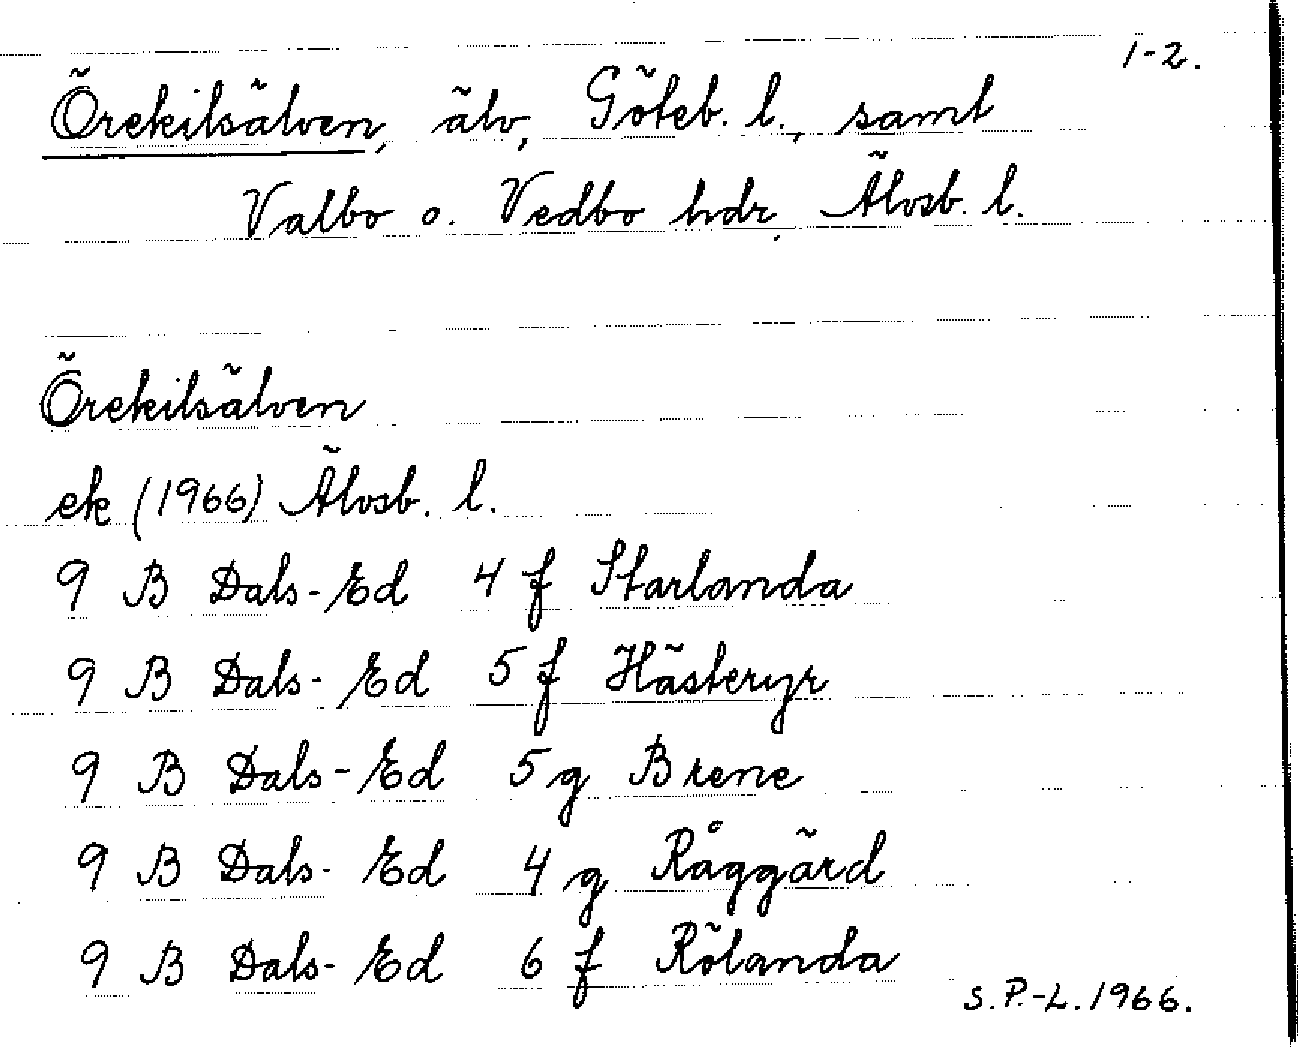 1-2.
Örekilsälven, älv, Göteb. l., samt
Valbo o. Vedbo hdr, Älvsb. l.
Örekilsälven
ek (1966) Älvsb. l.
9 B Dals-Ed 4 f Starlanda
9 B Dals-Ed 5 f Hästeryr
9 B Dals-Ed 5 g Brene
9 B Dals-Ed 4 g Råggärd
9 B Dals-Ed 6 f Rölanda
S.P.-L. 1966.